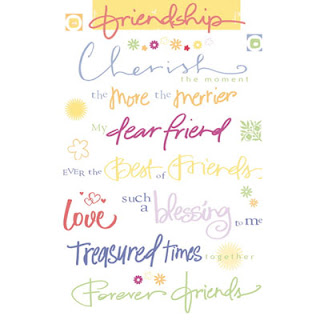 friendship
Cherish
the moment
the More the merrier
My dear friend
EVER the Best of Friends
love such a blessing to me
Treasured times together
Forever friends